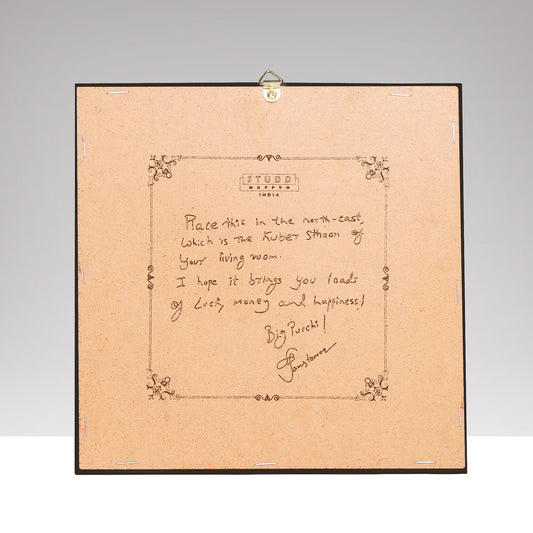 STUDD
MUFFYN
INDIA
Place this in the north-east,
which is The Kuber Sthaan of
your living room.
I hope it brings you loads
of Luck, money and happiness!
Big Pucchi!